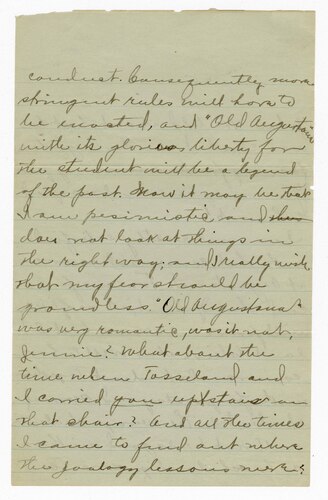 conduct. Consequently more
stringent rules will have to
be enacted, and "Old Augustana
with its glorious liberty for
the student will be a legend
of the past. Now it may be that
I am pesimistic and
does not look at things in
the right way; and I really wish
that my fear should be
groundless. "Old Augustana"
was very romantic, was it not,
Jennie? What about the
time when Tosseland and
I carried you upstairs on
that chair? And all the times
I came to find out where
the zoology lessons were?